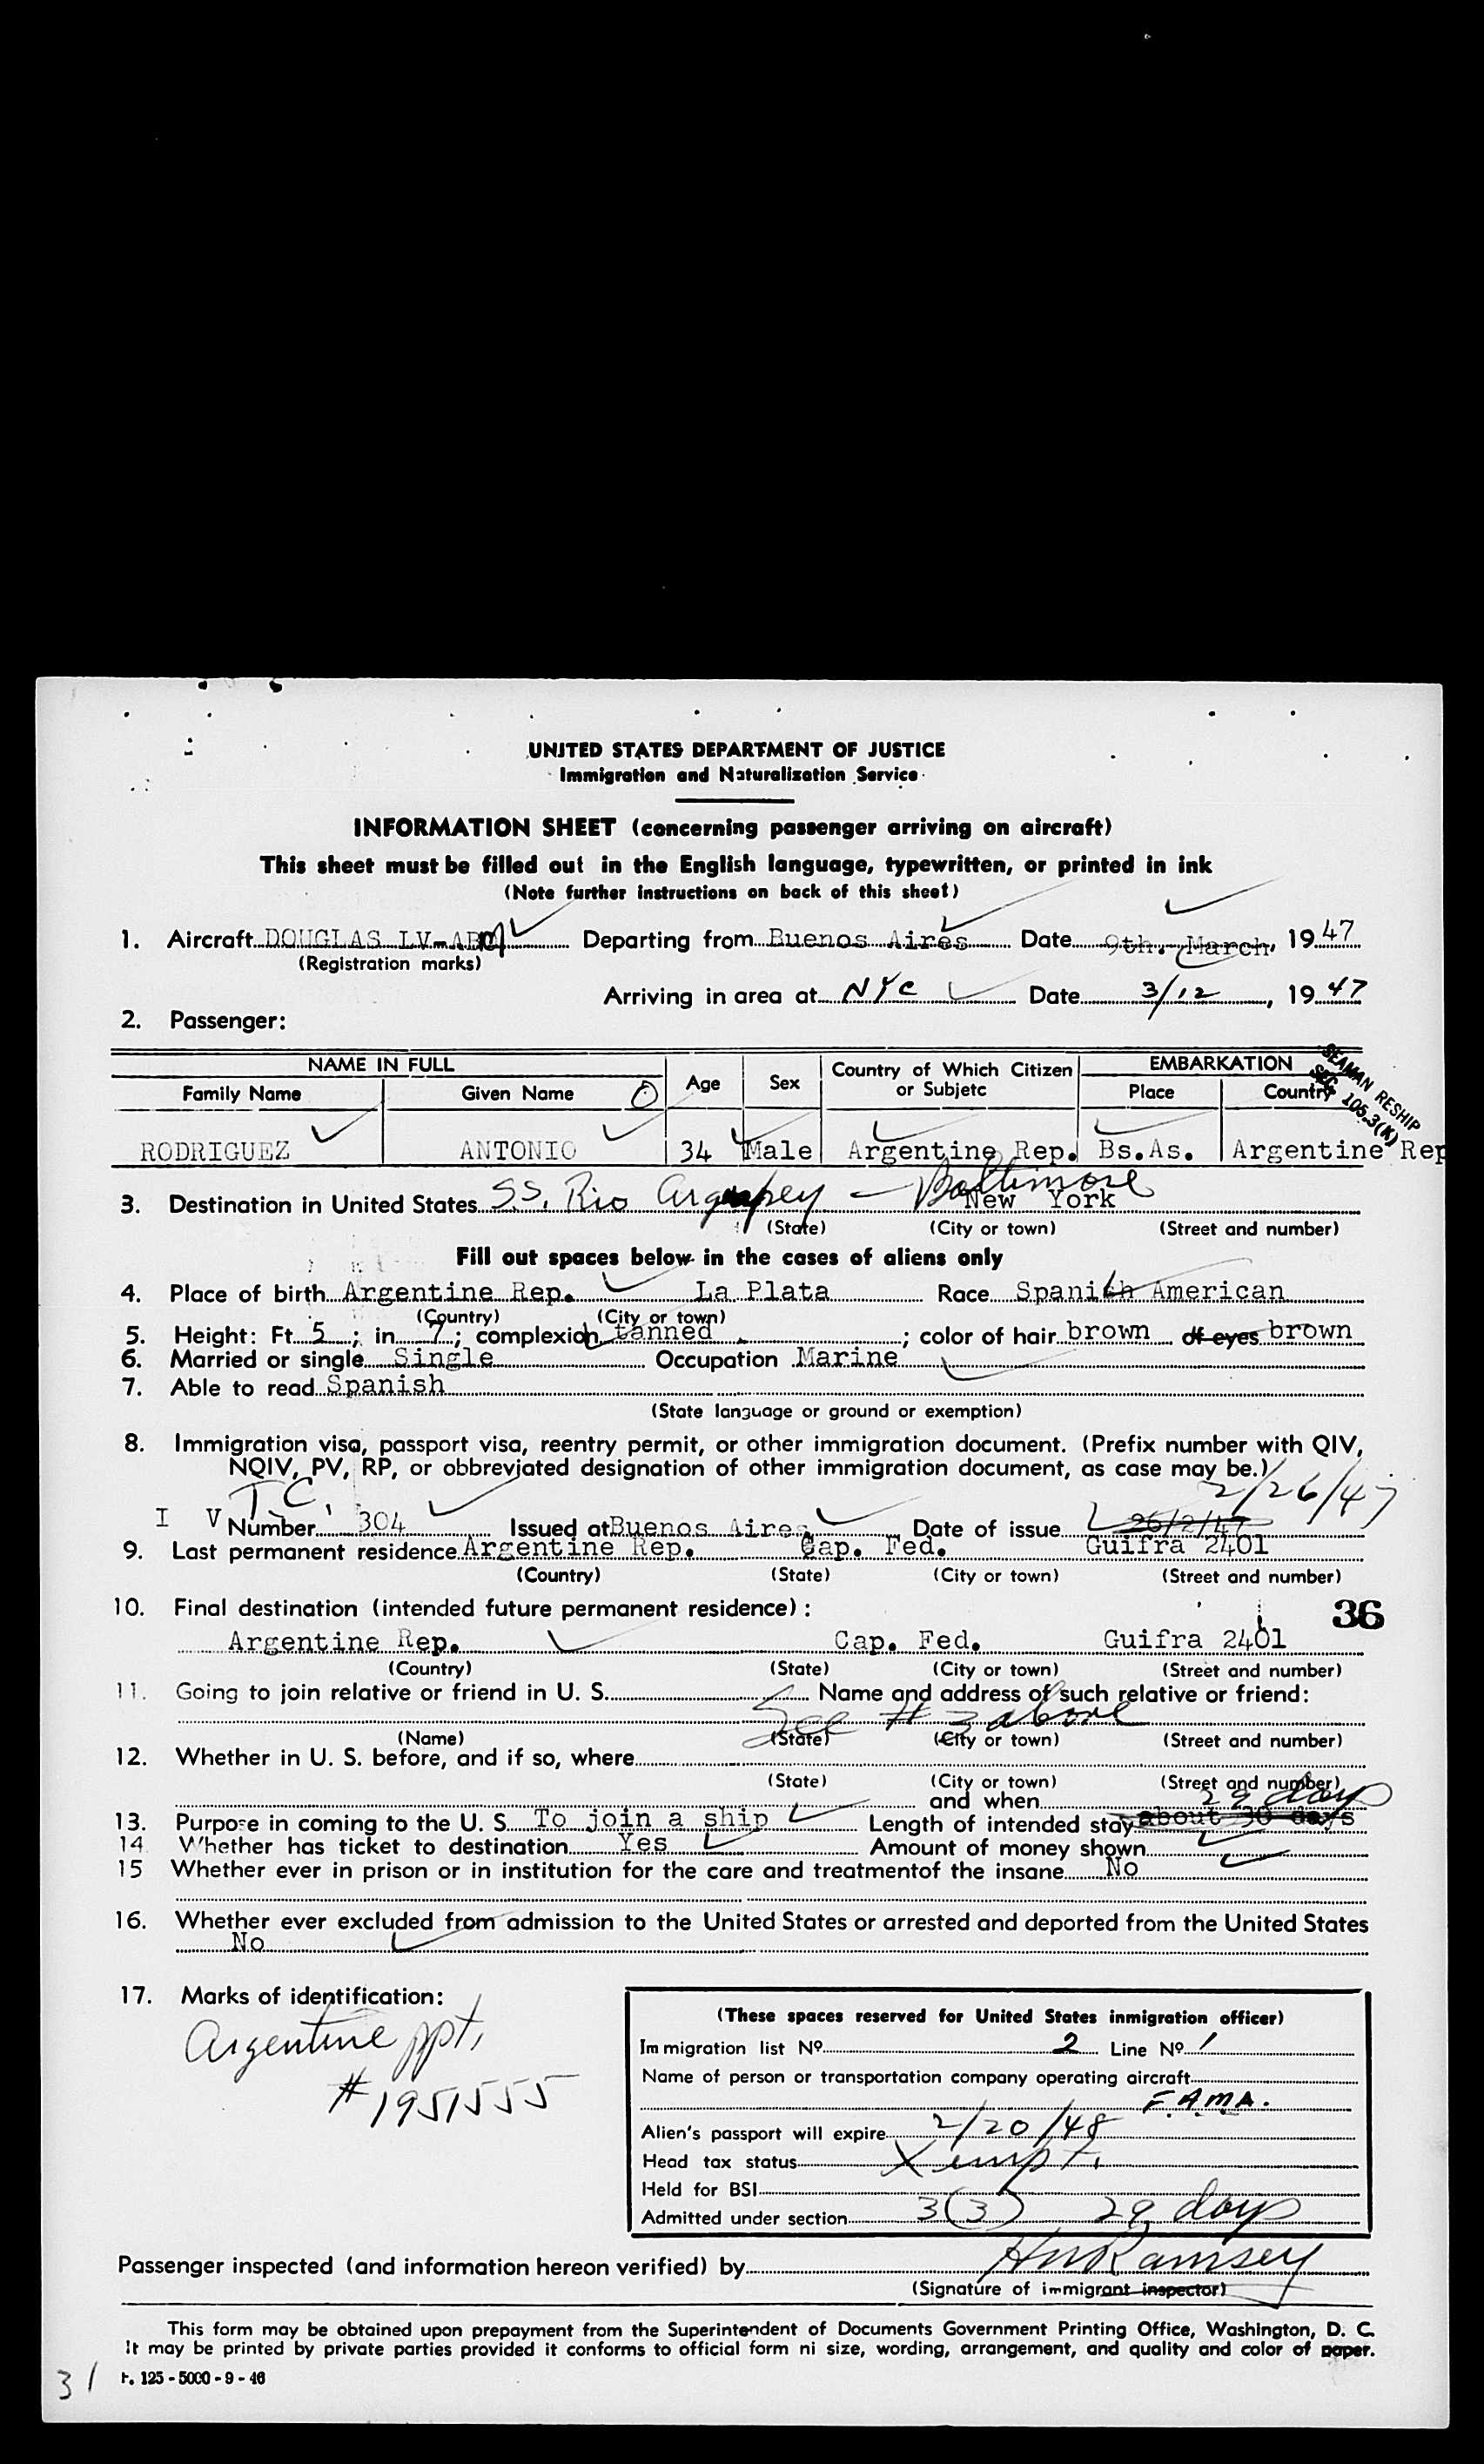 UNITED STATES DEPARTMENT OF JUSTICE
Immigration and Naturalization Service
INFORMATION SHEET (concerning passenger arriving on aircraft)
This sheet must be filled out in the English language, typewritten, or printed in ink
(Note further instructions on back of this sheet)
1. Aircraft DOUGLAS LV- Departing from Buenos Aires Date 9th. March, 1947
(Registration marks)
Arriving in area at NYC Date 3/12, 1947
2. Passenger:
NAME IN FULL Age Sex Country of Which Citizen or Subjetc EMBARKATION
Family Name Given Name Place Country
SEAMAN RESHIP
SEC 105.3(K)
RODRIGUEZ ANTONIO 34 Male Argentine Rep. Bs.As. Argentine Rep
3. Destination in United States S.S. Rio — Baltimore
New York
(State) (City or town) (Street and number)
Fill out spaces below in the cases of aliens only
4. Place of birth Argentine Rep. La Plata Race Spanish American
(Country) (City or town)
5. Height: Ft. 5; in. 7; complexion tanned; color of hair brown of eyes brown
6. Married or single Single Occupation Marine
7. Able to read Spanish
(State language or ground or exemption)
8. Immigration visa, passport visa, reentry permit, or other immigration document. (Prefix number with QIV,
NQIV, PV, RP, or obbreviated designation of other immigration document, as case may be.)
T.C. 2/26/47
I V Number 304 Issued at Buenos Aires Date of issue 26/2/47
9. Last permanent residence Argentine Rep. Cap. Fed. Guifra 2401
(Country) (State) (City or town) (Street and number)
10. Final destination (intended future permanent residence): 36
Argentine Rep. Cap. Fed. Guifra 2401
(Country) (State) (City or town) (Street and number)
11. Going to join relative or friend in U. S. Name and address of such relative or friend:
See # 3 above
(Name) (State) (City or town) (Street and number)
12. Whether in U. S. before, and if so, where
(State) (City or town) (Street and number)
and when
29 days
13. Purpose in coming to the U. S. To join a ship Length of intended stay about 30 days
14. Whether has ticket to destination Yes Amount of money shown
15 Whether ever in prison or in institution for the care and treatmentof the insane No
16. Whether ever excluded from admission to the United States or arrested and deported from the United States
No
17. Marks of identification:
Argentine ppt.
#1951555
(These spaces reserved for United States inmigration officer)
Immigration list Nº 2 Line Nº 1
Name of person or transportation company operating aircraft
F.A.M.A.
Alien's passport will expire 2/20/48
Head tax status Xempt.
Held for BSI
Admitted under section 3(3) 29 days
Passenger inspected (and information hereon verified) by HWRamsey
(Signature of immigrant inspector)
This form may be obtained upon prepayment from the Superintendent of Documents Government Printing Office, Washington, D. C.
It may be printed by private parties provided it conforms to official form ni size, wording, arrangement, and quality and color of paper.
F. 125 - 5000 - 9 - 46
31